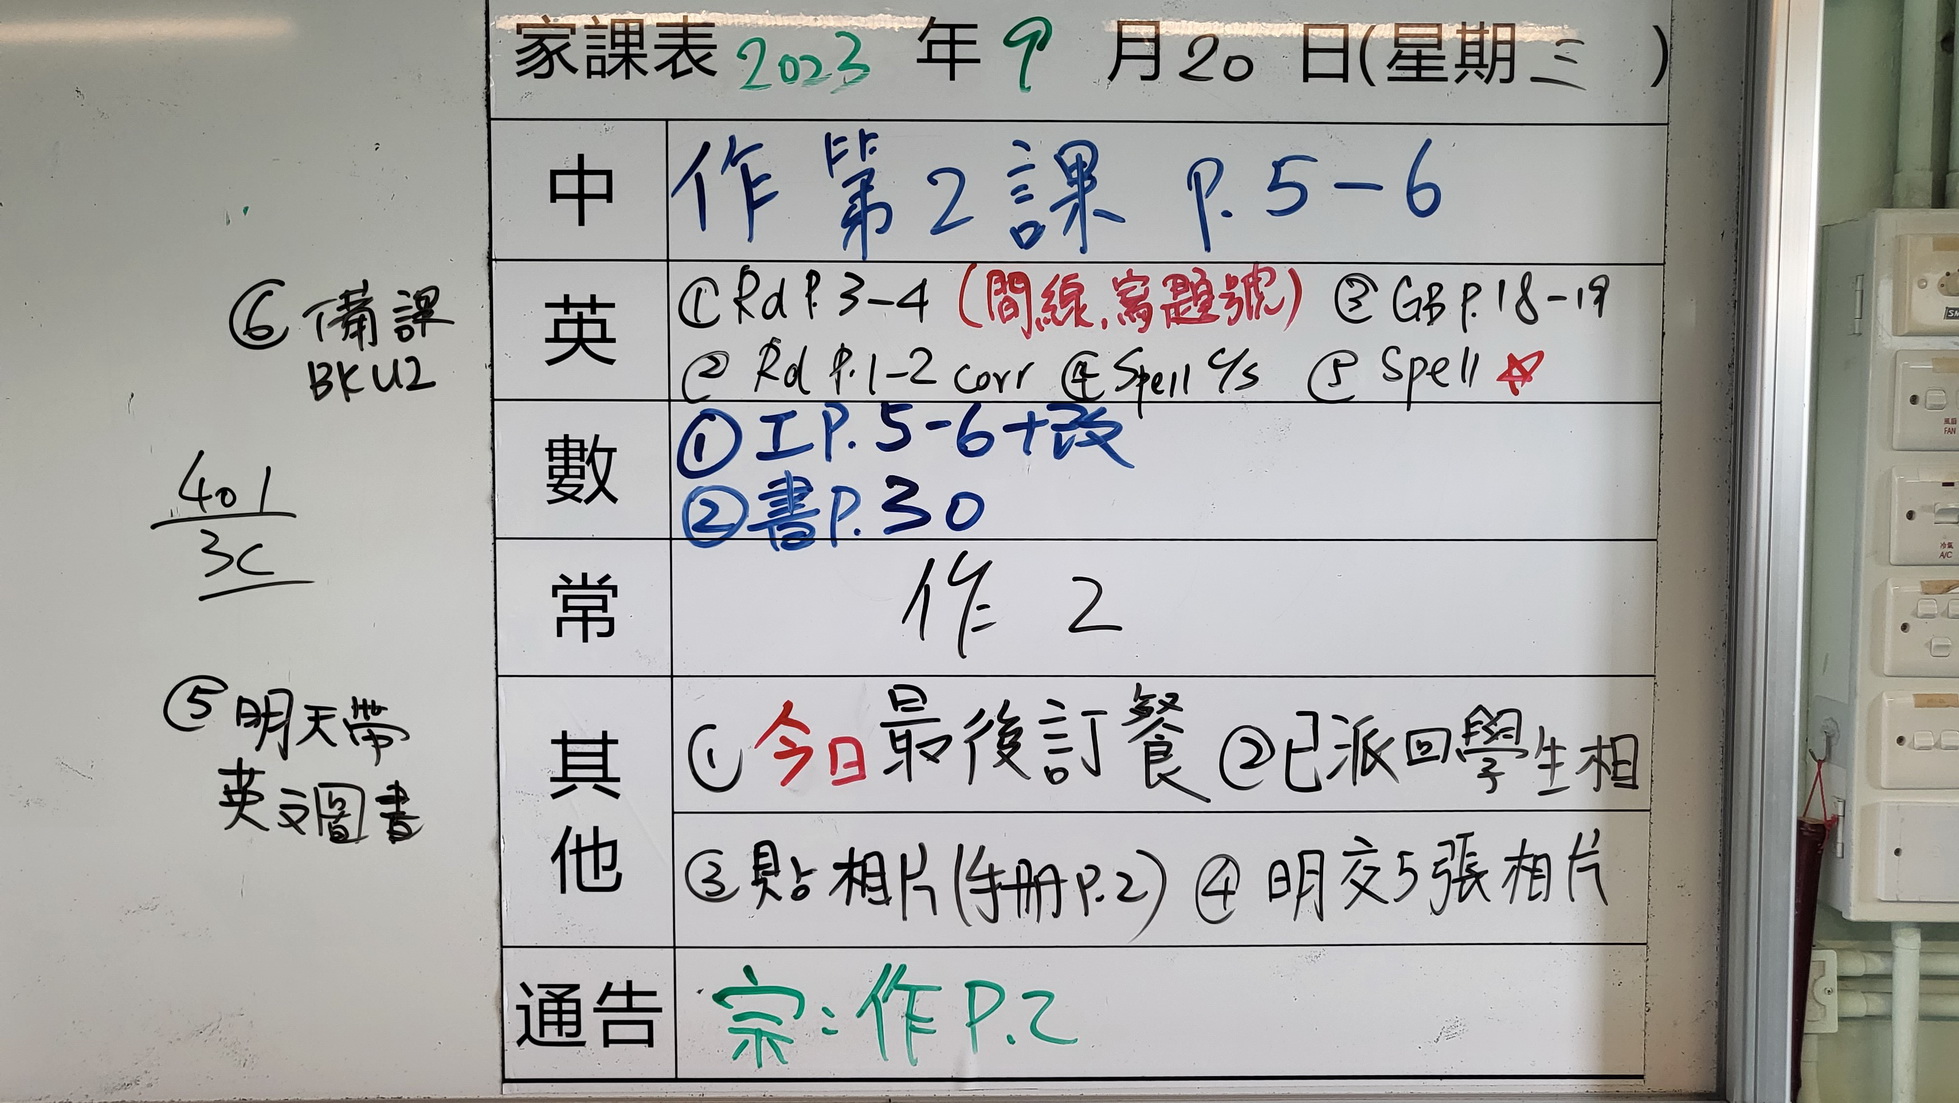 家課表 2023 年 9 月 20 日(星期三 )
中 作 第 2 課 P. 5-6
英 ① Rd P. 3-4 (間線, 寫題號) ③ GB P. 18-19
② Rd P. 1-2 corr ④ Spell c/s ⑤ Spell ☆
⑥ 備課
BK U2
數 ① 工 P. 5-6 + 改
② 書 P. 30
401
3C
常 作 2
其他 ① 今日最後訂餐 ② 已派回學生相
③ 貼相片(手冊 P.2) ④ 明交5張相片
⑤ 明天帶
英文圖書
通告 宗: 作 P.2
風扇
FAN
冷氣
A/C